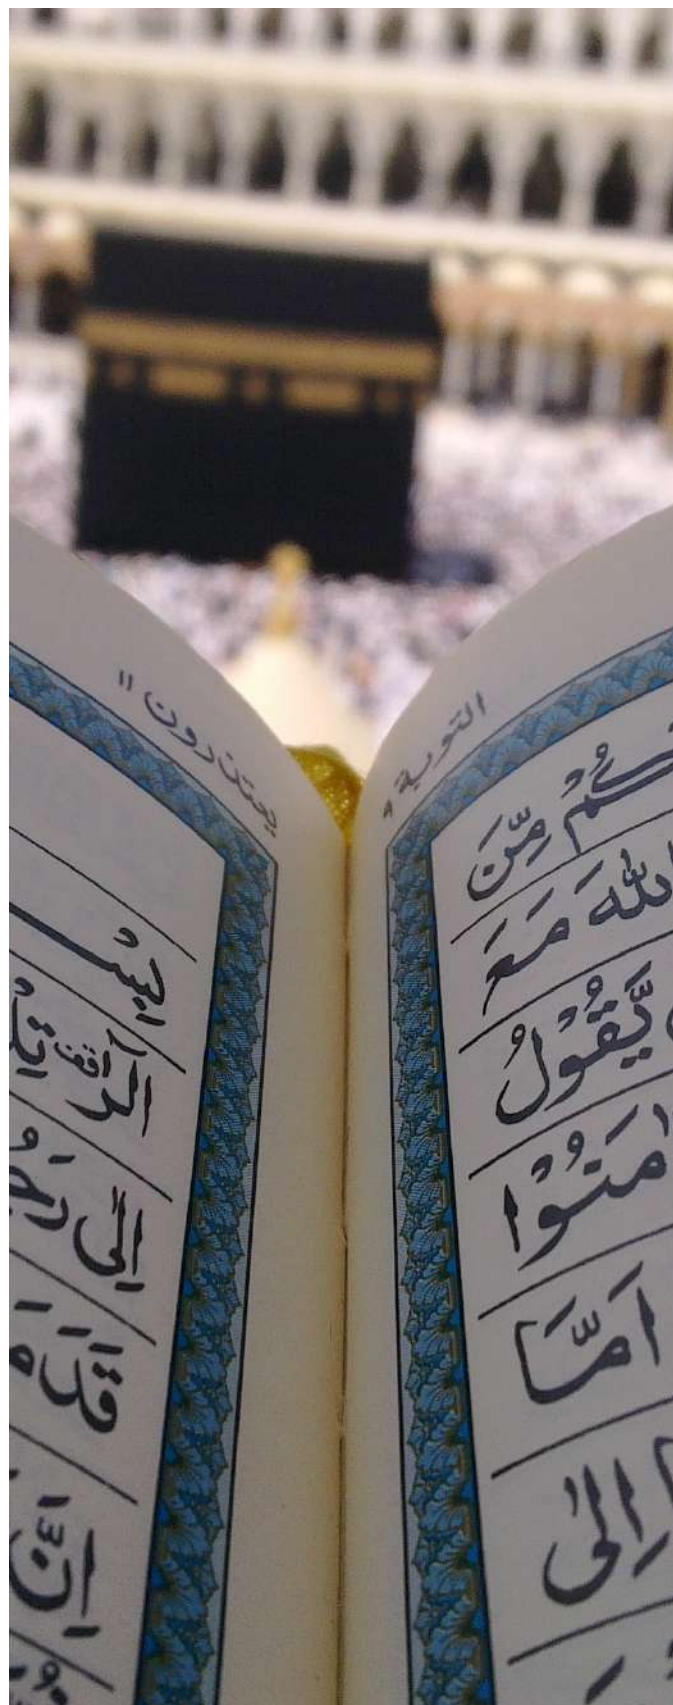 التوبة ٩
كُمْ مِّنَ
اللهَ مَعَ
يَّقُوْلُ
اٰمَنُوْا
اَمَّا
اِلٰى
يعتذرون ١١
بِسْـ
الٓرٰ تِلْ
اِلٰى رَجُ
قَدَمَ
اِنَّ